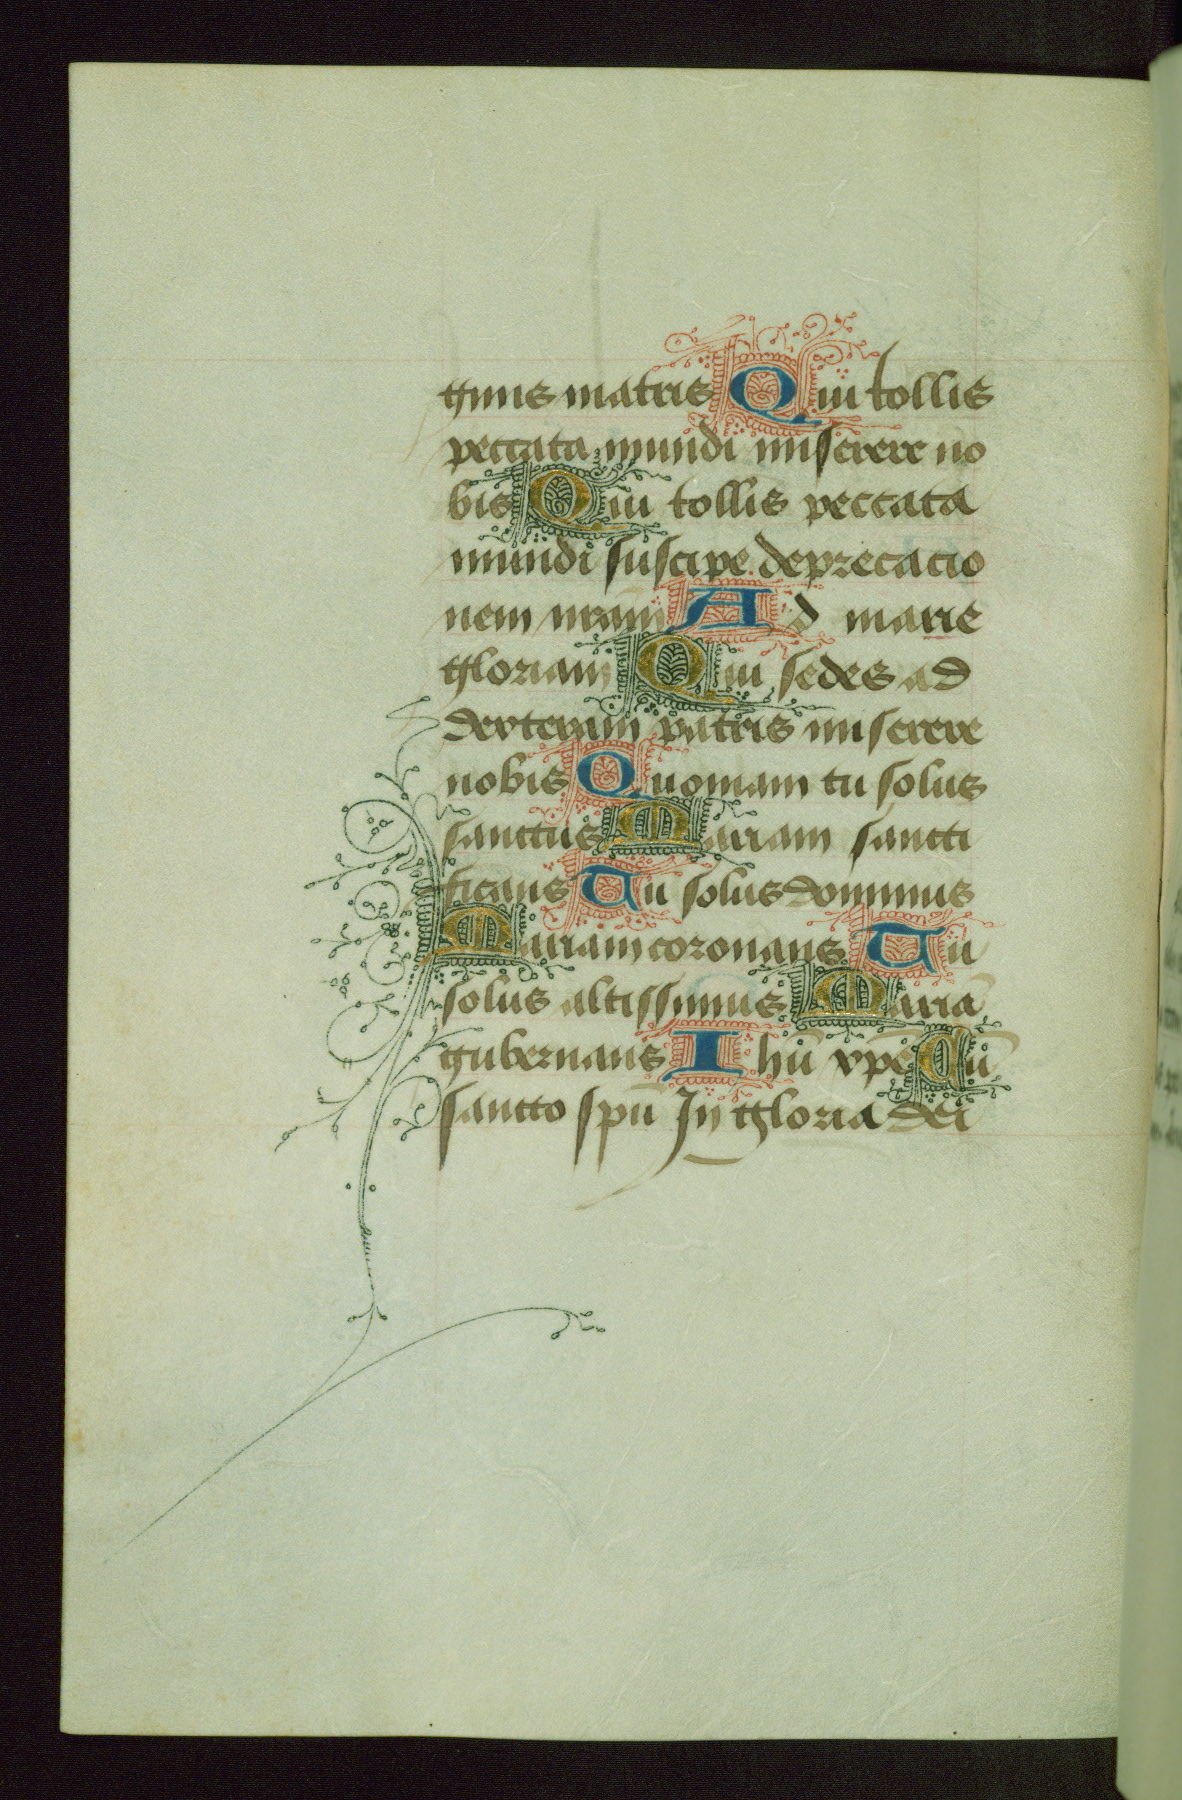 ginis matris Qui tollis
peccata mundi miserere no
bis Qui tollis peccata
mundi suscipe deprecacio
nem nr̄am Ad marie
gloriam Qui sedes ad
dexteram patris miserere
nobis Quoniam tu solus
sanctus Mariam sancti
ficans Tu solus dominus
Mariam coronans Tu
solus altissimus Mariā
gubernans Ihū xpē Cū
sancto spū In gloria dei